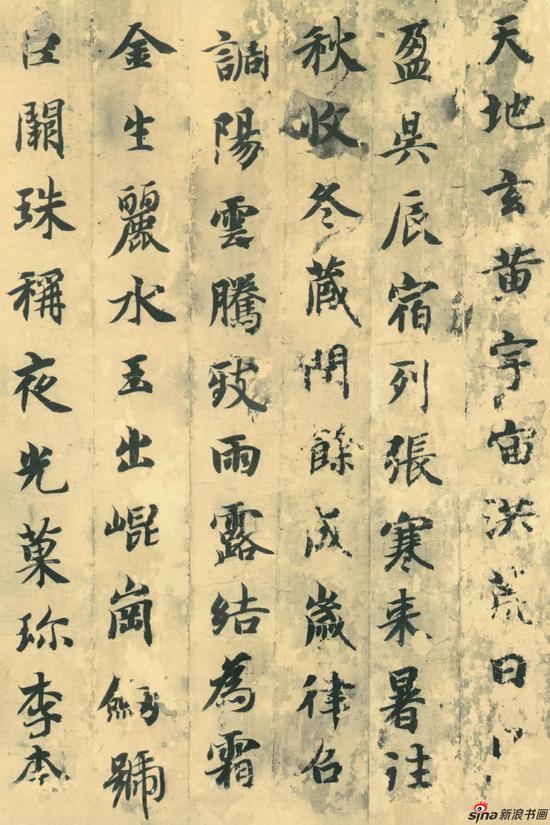 天地玄黄宇宙洪荒日
盈昃辰宿列張寒来暑往
秋收冬藏閏餘成歲律召
調陽雲騰致雨露結為霜
金生麗水玉出崐崗劔號
巨闕珠稱夜光菓珎李柰
sina新浪书画